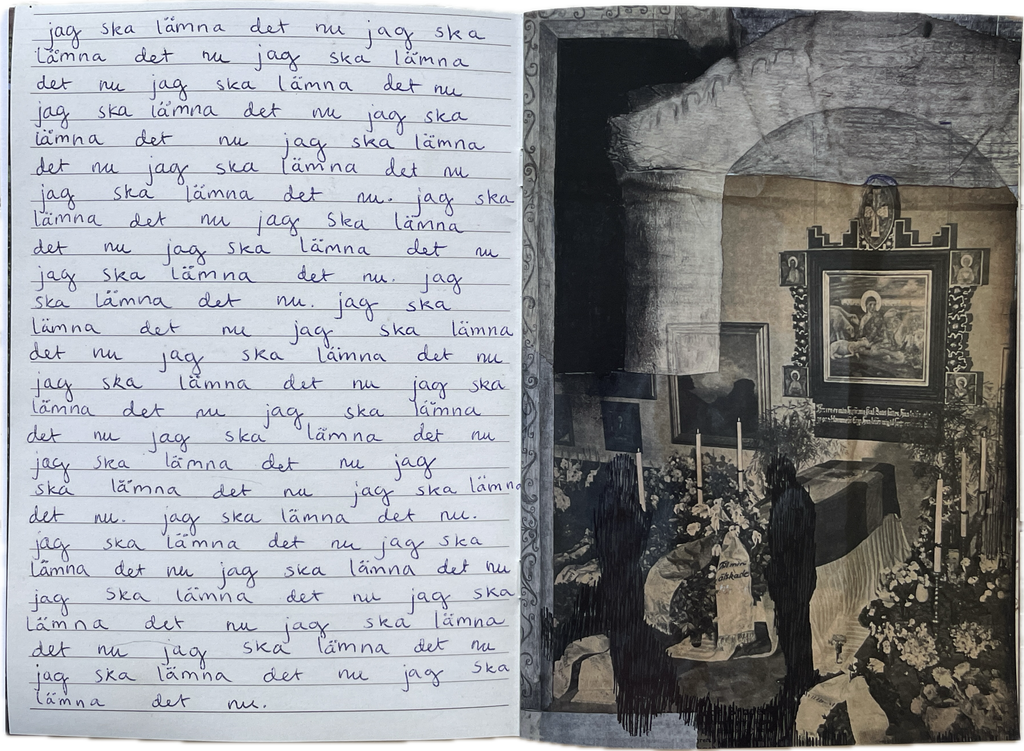 jag ska lämna det nu jag ska
lämna det nu jag ska lämna
det nu jag ska lämna det nu
jag ska lämna det nu jag ska
lämna det nu jag ska lämna
det nu jag ska lämna det nu
jag ska lämna det nu. jag ska
lämna det nu jag ska lämna
det nu jag ska lämna det nu
jag ska lämna det nu. jag
ska lämna det nu. jag ska
lämna det nu jag ska lämna
det nu jag ska lämna det nu
jag ska lämna det nu jag ska
lämna det nu jag ska lämna
det nu jag ska lämna det nu
jag ska lämna det nu jag
ska lämna det nu jag ska lämna
det nu. jag ska lämna det nu.
jag ska lämna det nu jag ska
lämna det nu jag ska lämna det nu
jag ska lämna det nu jag ska
lämna det nu jag ska lämna
det nu jag ska lämna det nu
jag ska lämna det nu jag ska
lämna det nu.
älskade